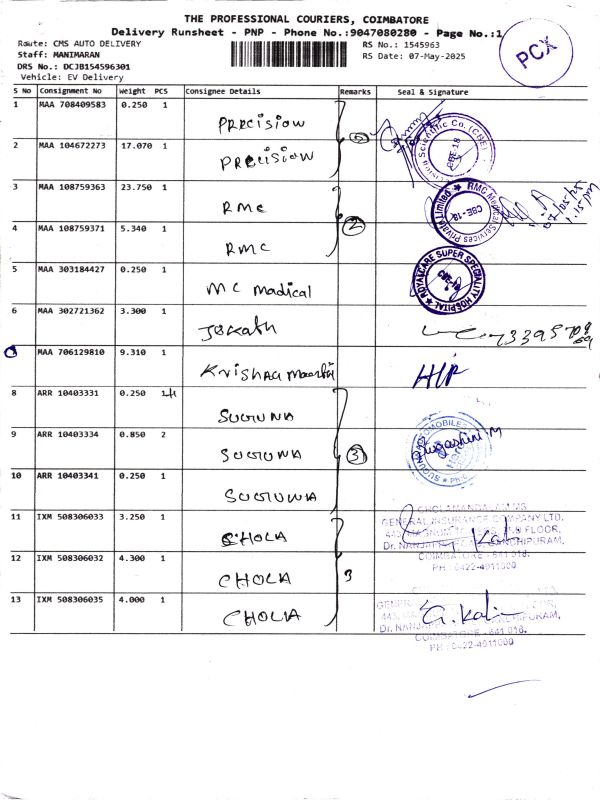 THE PROFESSIONAL COURIERS, COIMBATORE
Delivery Runsheet - PNP - Phone No.:9047080280 - Page No.:1
PCX
Route: CMS AUTO DELIVERY
Staff: MANIMARAN
DRS No.: DCJB154596301
Vehicle: EV Delivery
RS No.: 1545963
RS Date: 07-May-2025
S No Consignment No Weight PCS Consignee Details Remarks Seal & Signature
1 MAA 708409583 0.250 1 PRECISION
2 MAA 104672273 17.070 1 PRECISION
Scientific Co. (CBE) CBE-18
3 MAA 108759363 23.750 1 RMC
2
RMC Medical Services Private Limited CBE-18
07/05/25
1.15 pm
4 MAA 108759371 5.340 1 RMC
5 MAA 303184427 0.250 1 MC madical
ROYALCARE SUPER SPECIALITY HOSPITAL
6 MAA 302721362 3.300 1
MAA 706129810 9.310 1
8 ARR 10403331 0.250 SUGUNA
9 ARR 10403334 0.850 2 SUGUNA
3
Sugashini M
10 ARR 10403341 0.250 1 SUGUNA
11 IXM 508306033 3.250 1 CHOLA
GENERAL INSURANCE COMPANY LTD.
COIMBATORE - 641 018.
PH : 0422-4911000
12 IXM 508306032 4.300 1 CHOLA
3
13 IXM 508306035 4.000 1 CHOLA
COIMBATORE - 641 018.
PH : 0422-4911000